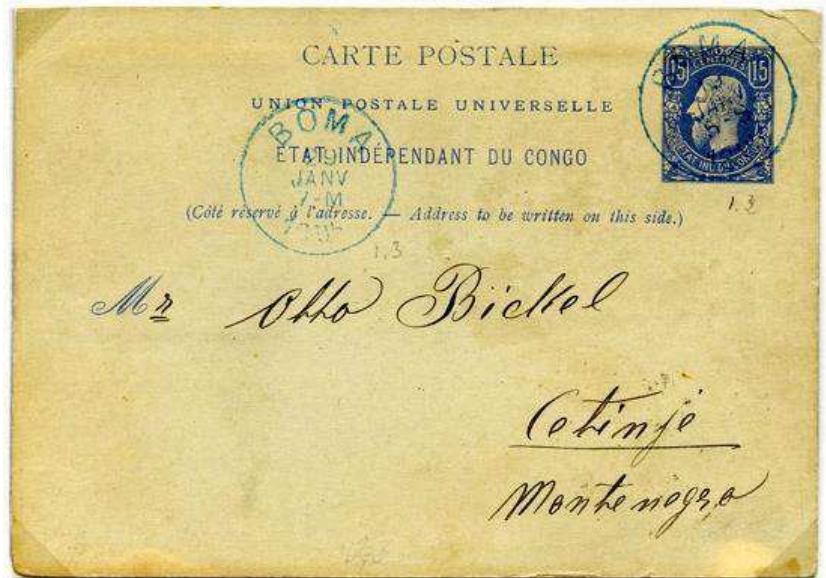 CARTE POSTALE
15 CENTIMES 15
UNION POSTALE UNIVERSELLE
BOMA
ETAT INDÉPENDANT DU CONGO
BOMA
19
JANV
7-M
(Côté réservé à l'adresse. — Address to be written on this side.)
1.3
1.3
Mr Otto Bickel
Cetinje
Montenegro